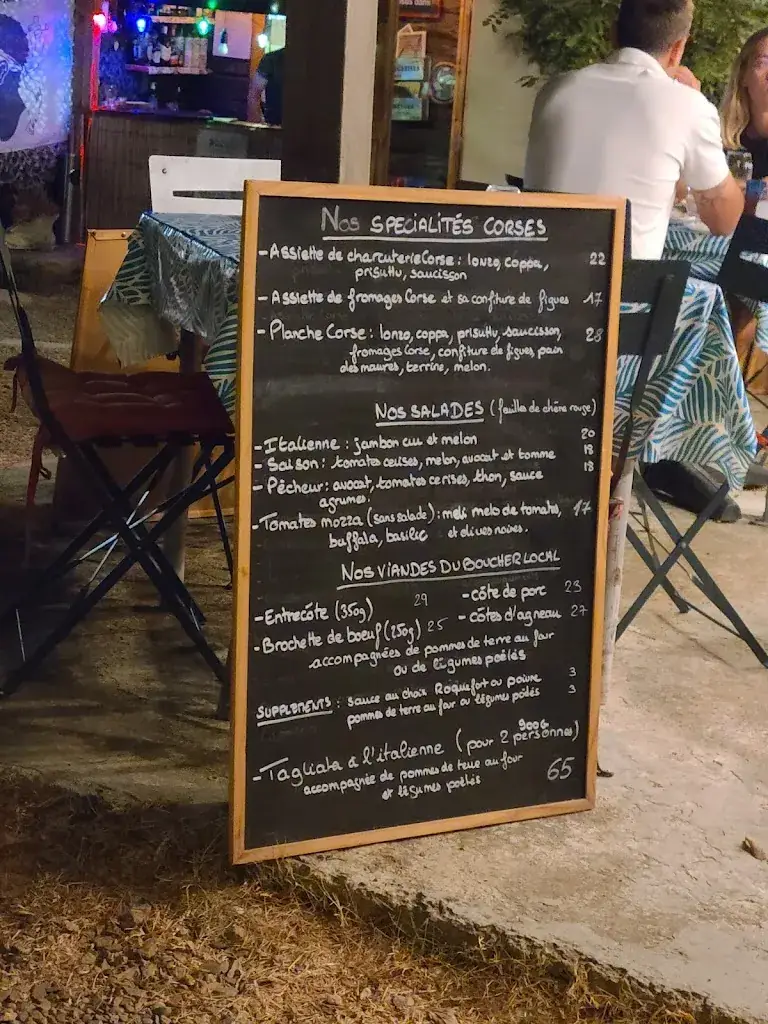 Nos SPECIALITÉS CORSES
- Assiette de charcuterie Corse : lonzo, coppa, 22
prisuttu, saucisson
- Assiette de fromages Corse et sa confiture de figues 17
- Planche Corse : lonzo, coppa, prisuttu, saucisson, 28
fromages Corse, confiture de figues, pain
des maures, terrine, melon.
NOS SALADES (feuilles de chêne rouge)
- Italienne : jambon cru et melon 20
- Saison : tomates cerises, melon, avocat et tomme 18
- Pêcheur : avocat, tomates cerises, thon, sauce 18
agrumes.
- Tomates mozza (sans salade) : meli melo de tomates, 17
buffala, basilic et olives noires.
NOS VIANDES DU BOUCHER LOCAL
- Entrecôte (350g) 29 - côte de porc 23
- Brochette de boeuf (250g) 25 - côtes d'agneau 27
accompagnées de pommes de terre au four
ou de légumes poêlés
SUPPLEMENTS : sauce au choix Roquefort ou poivre 3
pommes de terre au four ou légumes poêlés 3
900G
- Tagliata à l'italienne (pour 2 personnes)
accompagnée de pommes de terre au four 65
et légumes poêlés